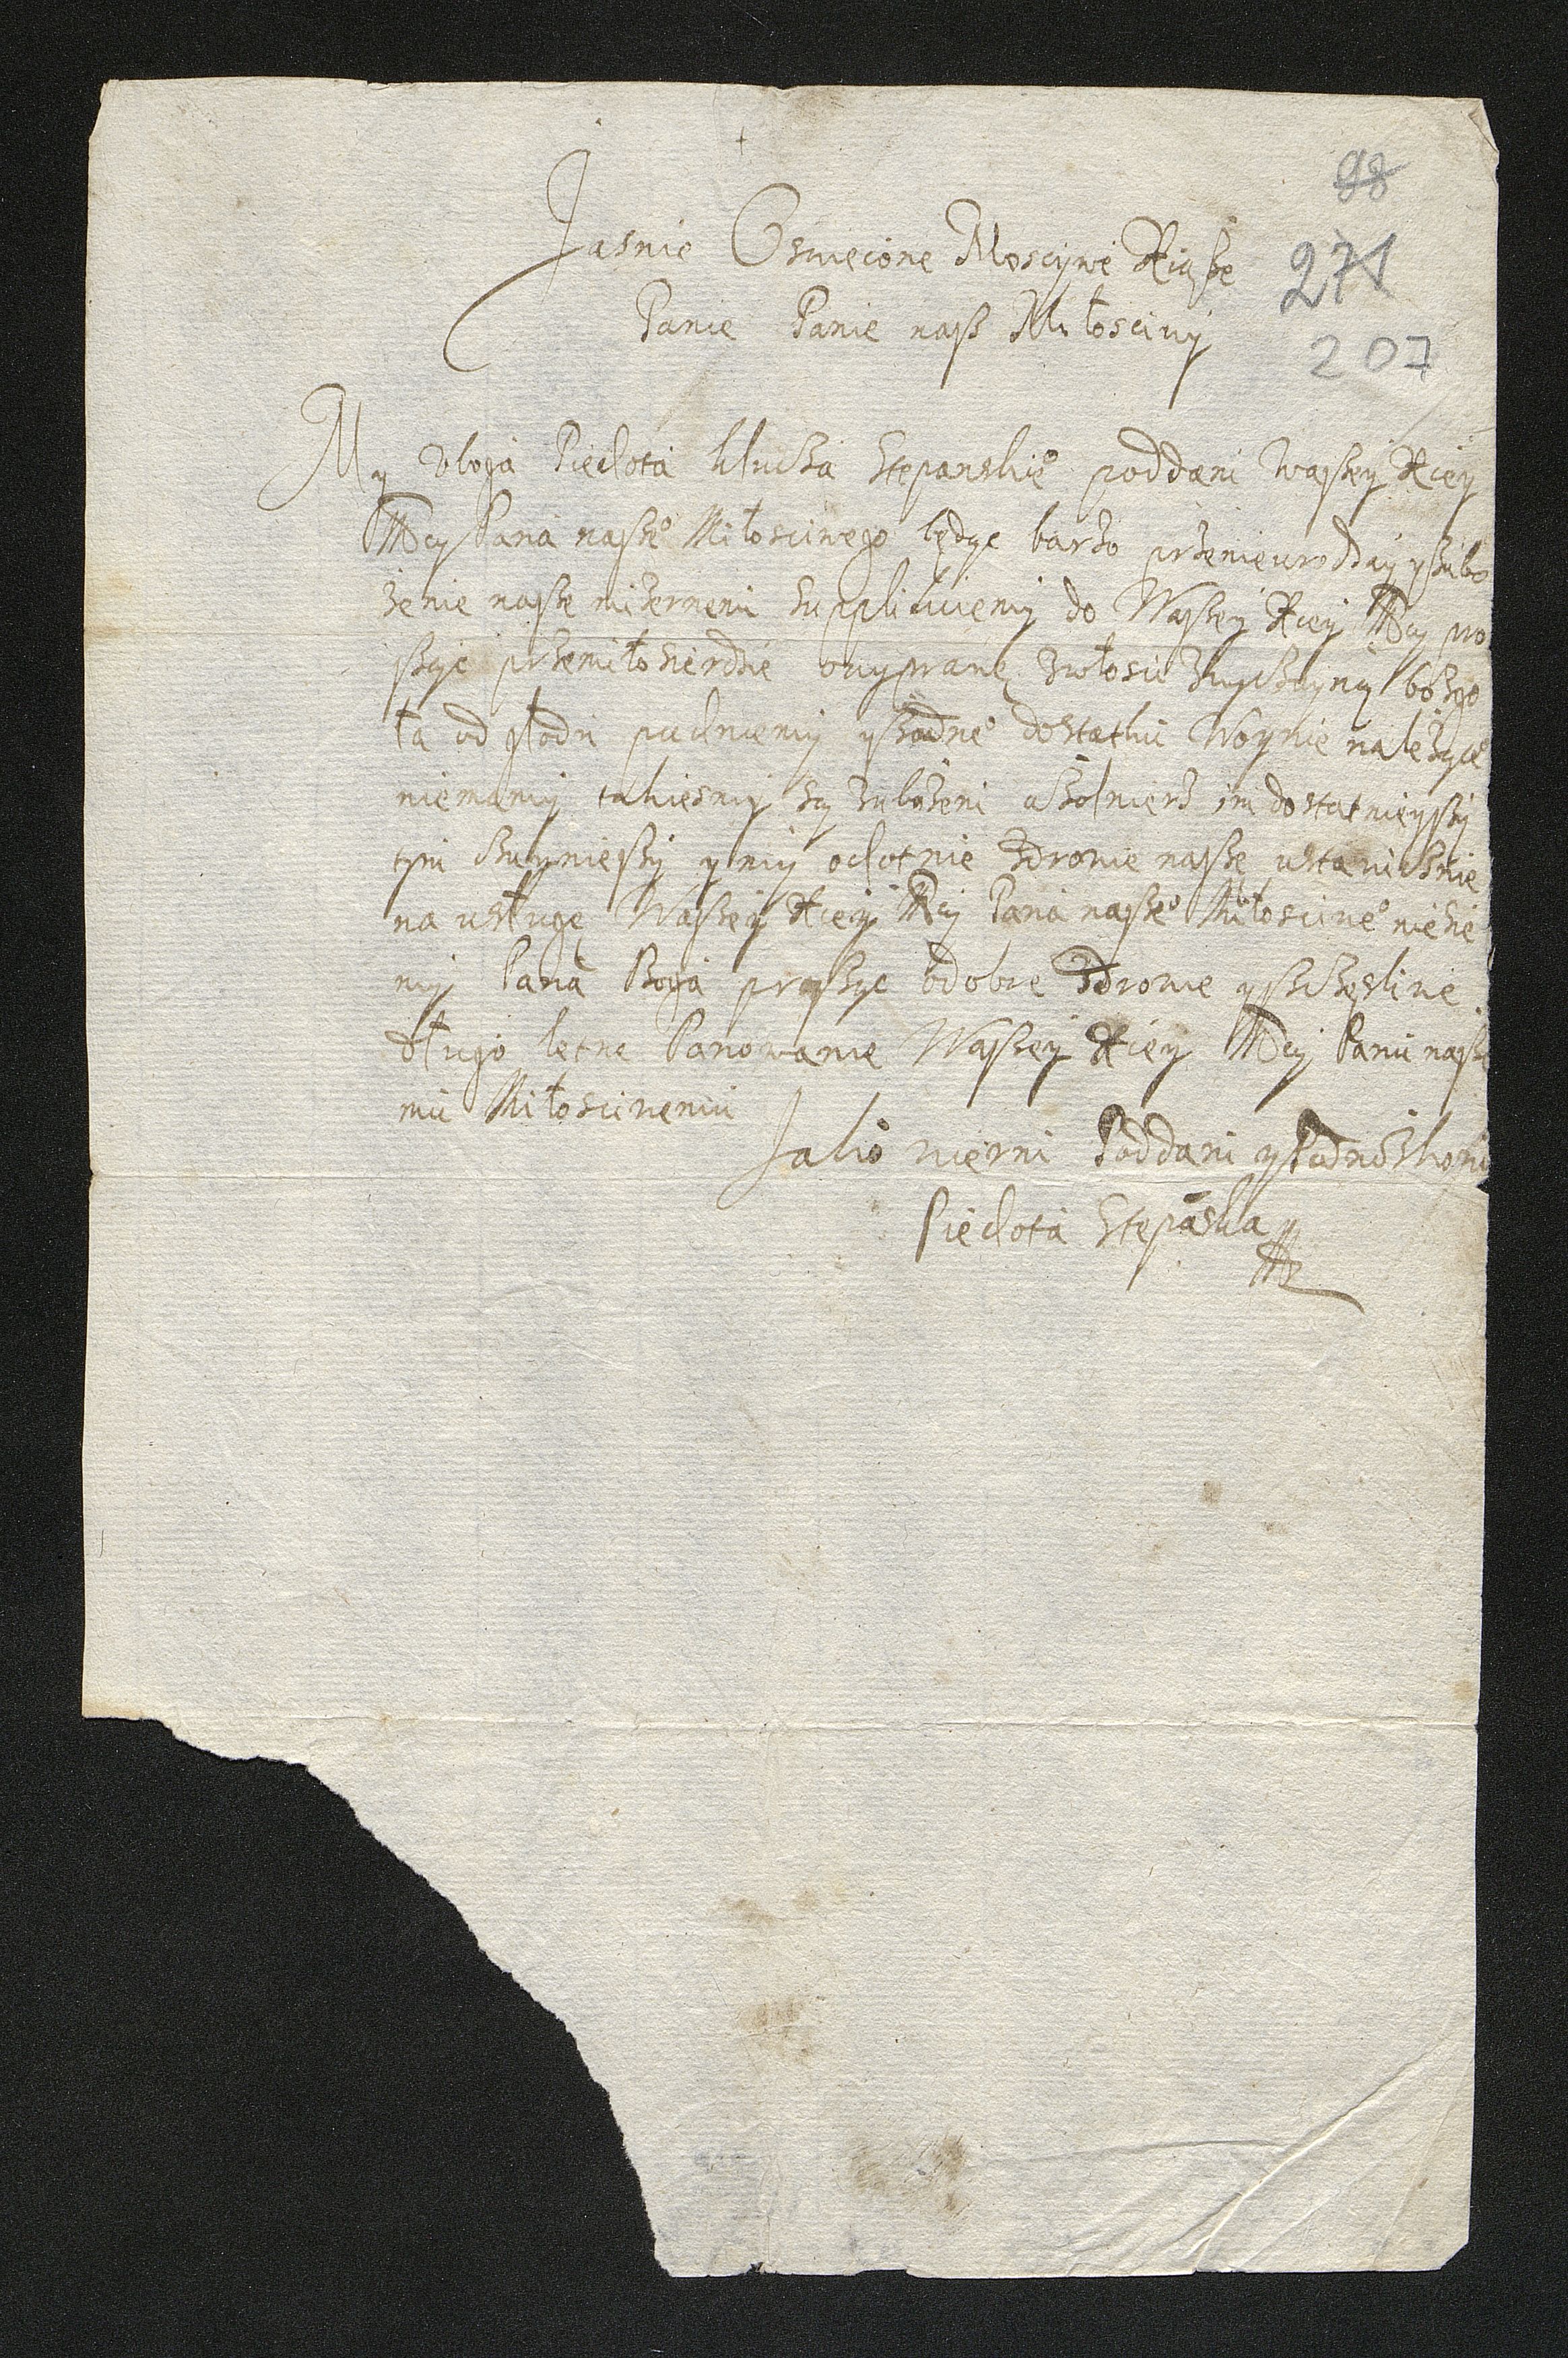 98
Jasnie Oswiecone Moscywe Xiąże
271
Panie Panie nasz Miłosciwy
207
My Uboga Piechota klucza Stepanskiẻ poddani Waszey Xcey
Mcy Pana naszẻ Miłosciwego będąc barzo przenieurodzay y zubo
żenie nasze mizernemi supplikuiemy do Waszey Xcey Mcy pro
sząc przemiłosierdzie owyprawę zwłosci bo
ta od głodu puchniemy yżadnẻ dostatku Woynie należące
niemamy takiesmy są zubożeni a żołnierz im dostatnieyszy
tym czuynieszy y my ochotnie zdrowie nasze ustawicznie
na usługę Waszey Xcey Mcy Pana naszẻ Miłosciwẻ niesie
my Pana Boga prosząc odobre zdrowie y szczęsliwe
długo letne Panowanie Waszey Xcey Mcy Panu nasze
mu Miłosciwemu
Jako wierni Poddani y Podnożkowie
Piechota Stepãska